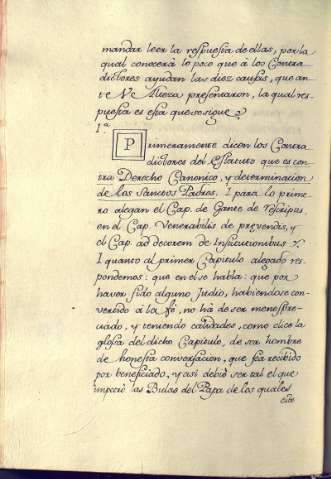 mandar leer la respuesta de ellas, por la
qual conocerà lo poco que à los Contra
dictores ayudan las diez causas, que an-
te V.e Alteza presentaron, la qual res-
puesta es esta que se sigue
1.a
Primeramente dicen los Contra
dictores del Estatuto que es con
tra Derecho Canonico, y determinacion
de los Sanctos Padres. I para lo prime-
ro alegan el Cap. de Gante de rescriptis,
en el Cap. Venerabilis de prevendis, y
el Cap. ad decorem de Institutionibus &.
I quanto al primer Capitulo alegado res-
pondemos: que en el se habla: que por
haver sido alguno Judio, habiendose con-
vertido à la fè, no hà de ser menospre-
ciado, y teniendo calidades, como dice la
glosa del dicho Capitulo, de ser hombre
de honesta conversacion, que sea recibido
por beneficiado, y asi debiò ser tal el que
impetrò las Bulas del Papa de los quales
este